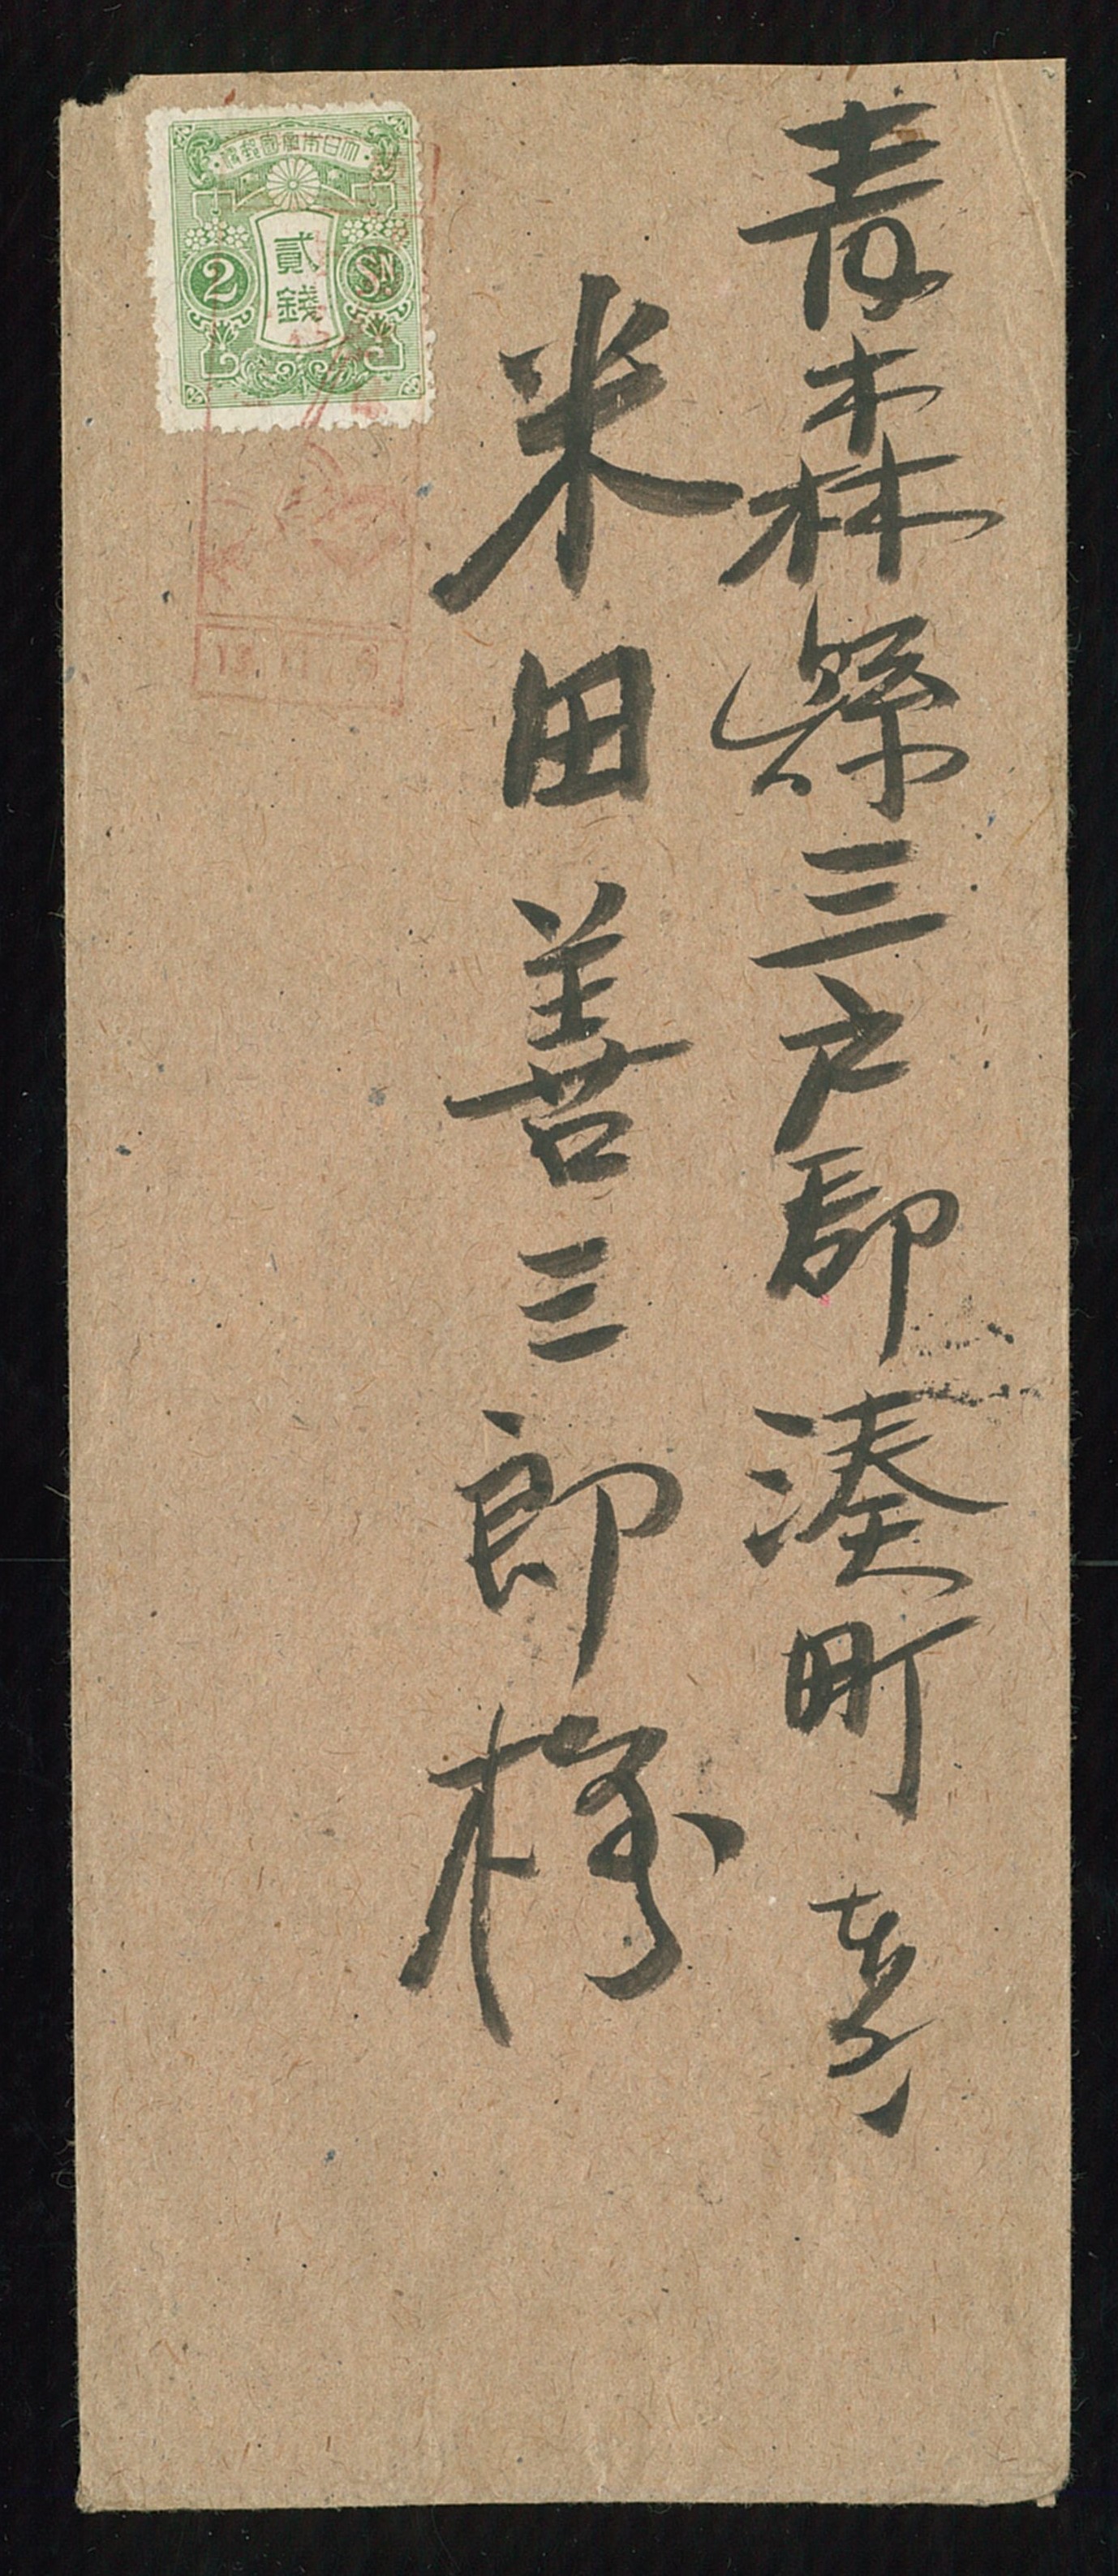 青森縣三戸郡湊町
米田善三郎様
大日本帝國郵便
貳錢
2
Sɴ
13 11 6